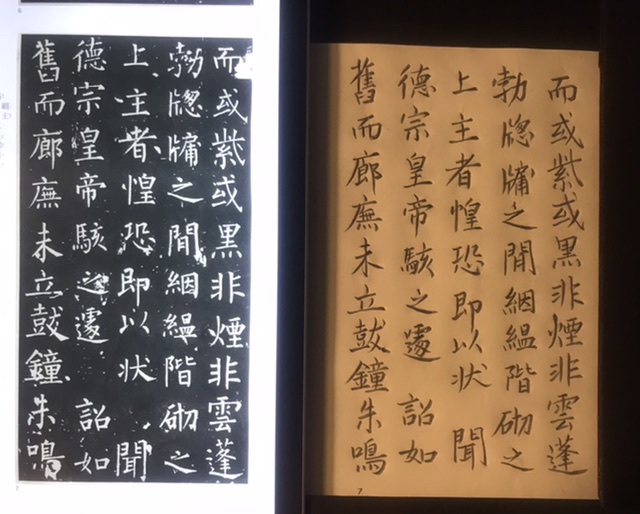 而或紫或黑非煙非雲蓬
勃牕牖之間絪縕階砌之
上主者惶恐即以狀 聞
德宗皇帝駭之遽 詔如
舊而廊廡未立鼓鐘朱鳴
7
而或紫或黑非煙非雲蓬
勃牕牖之間絪縕階砌之
上主者惶恐即以狀 聞
德宗皇帝駭之遽 詔如
舊而廊廡未立鼓鐘朱鳴
7